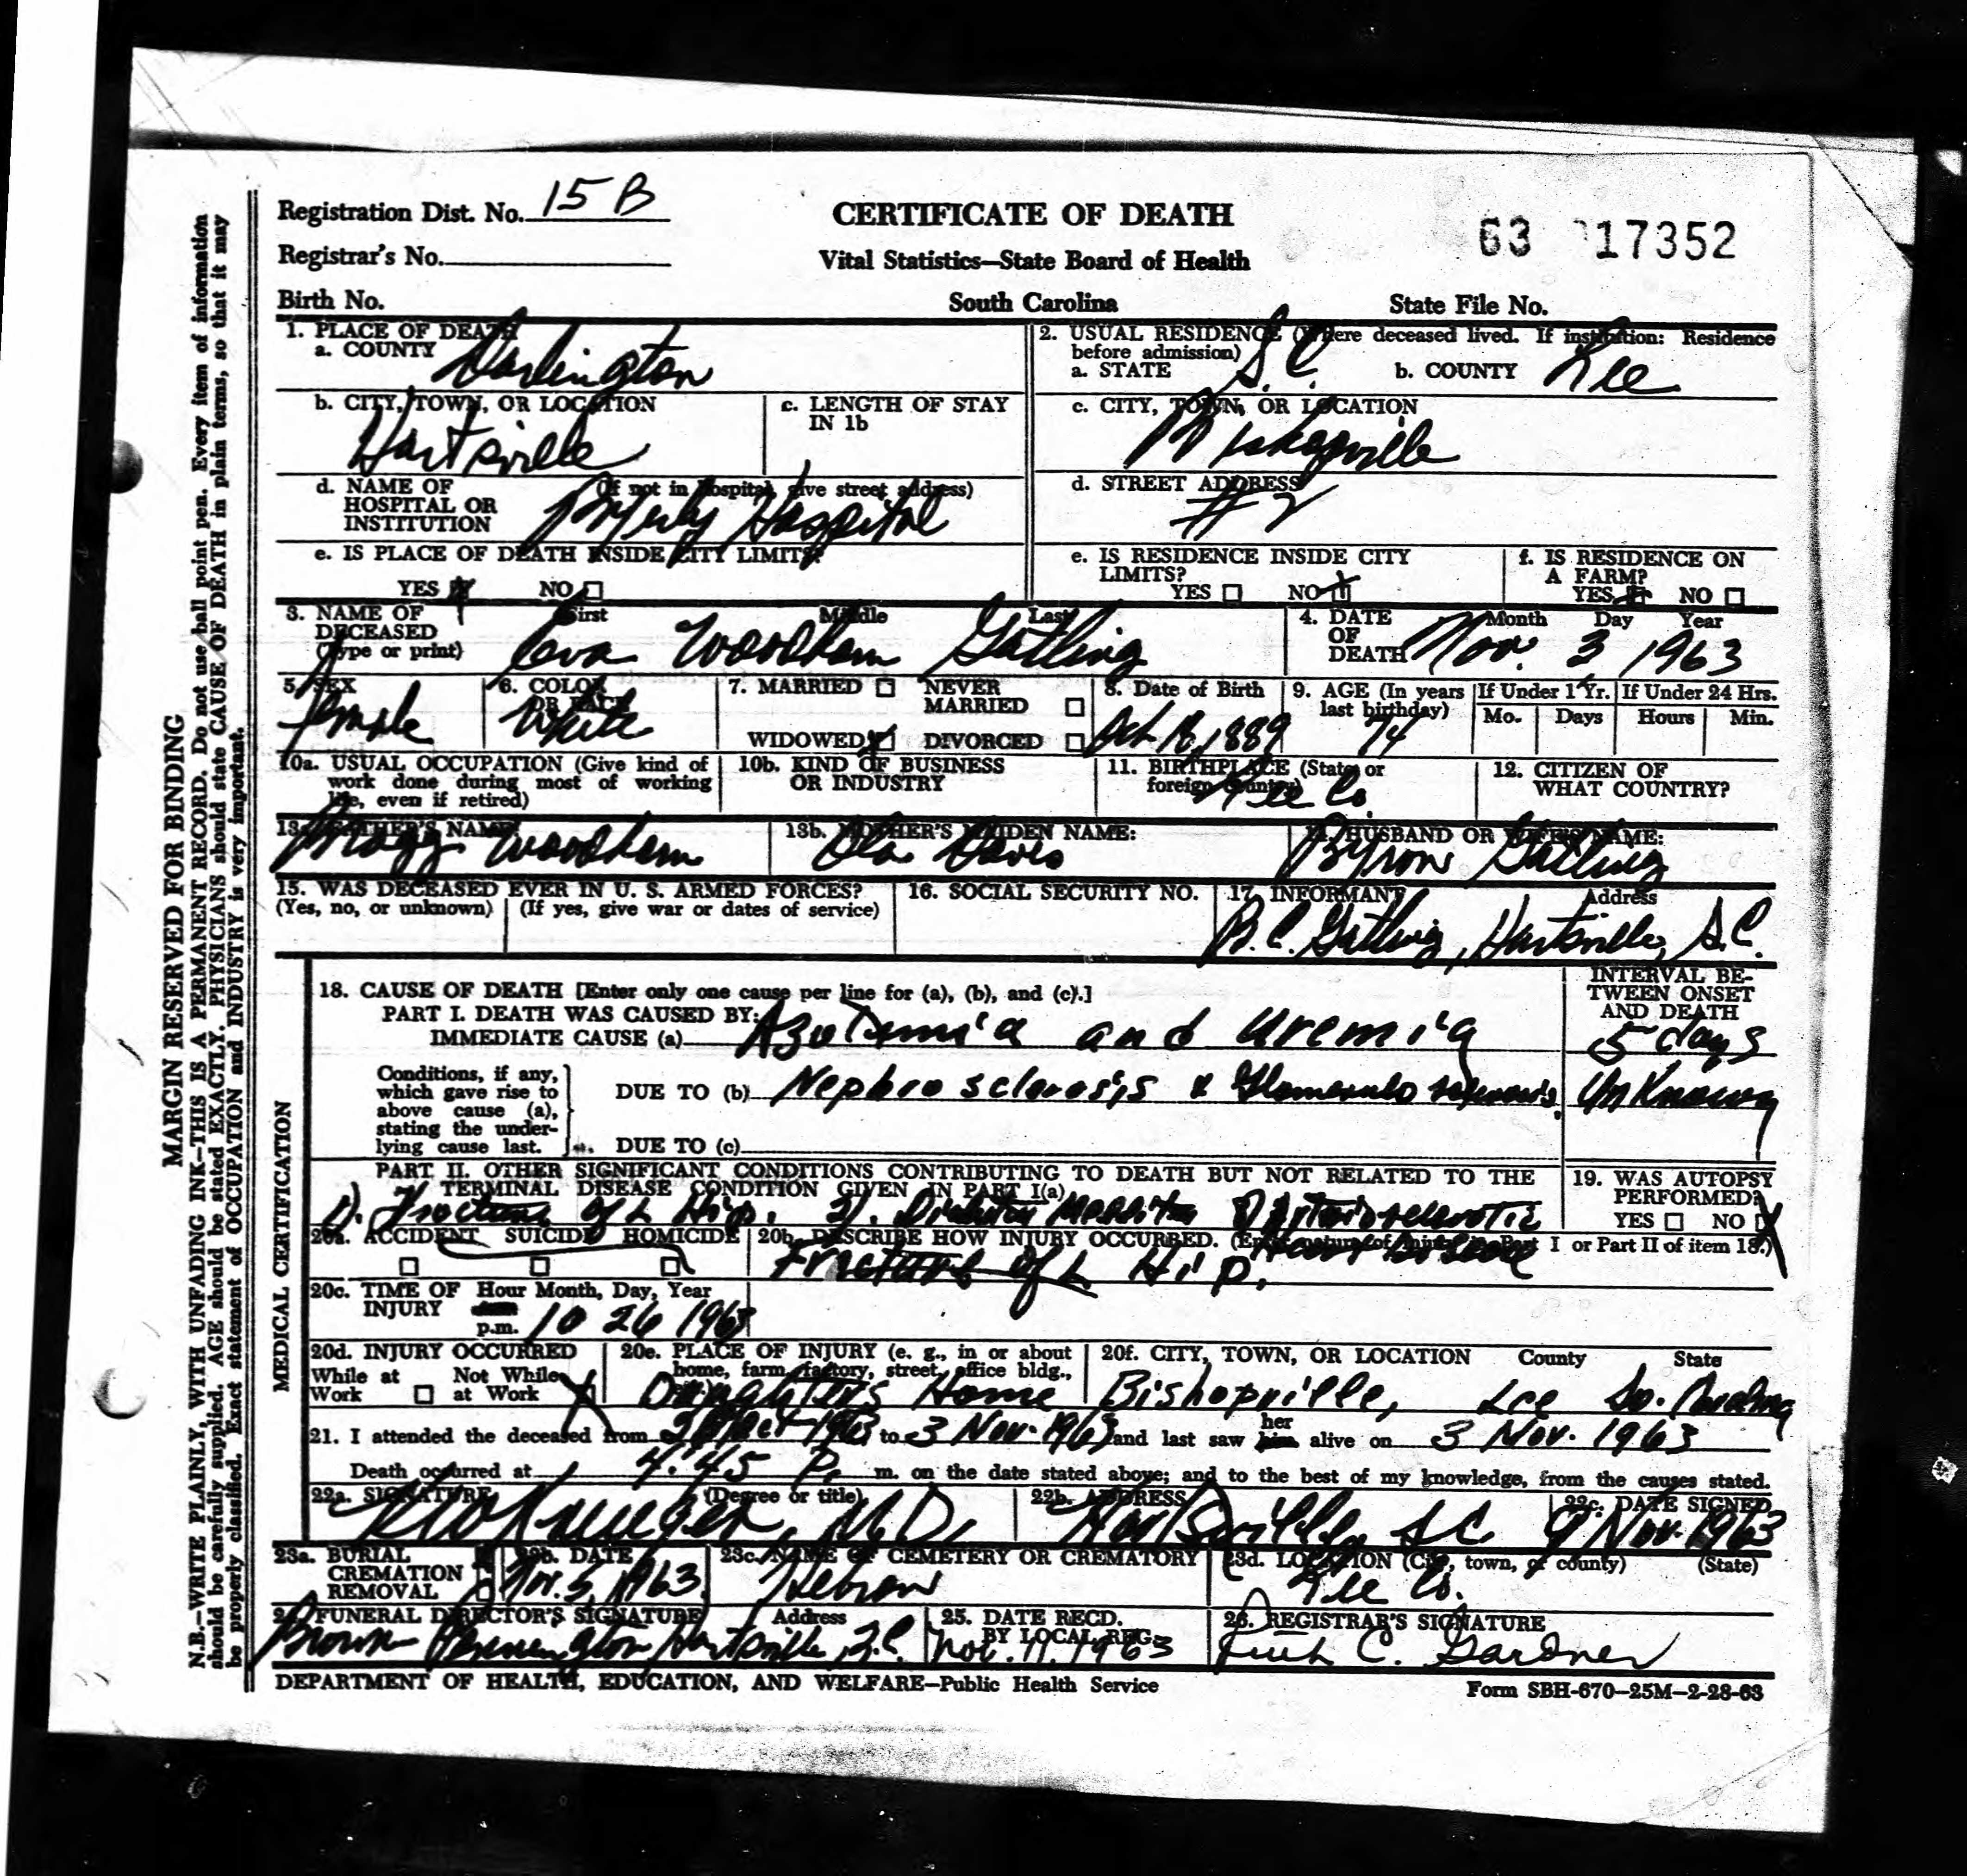 Registration Dist. No. 15 B
CERTIFICATE OF DEATH
63 17352
Registrar's No.
Vital Statistics—State Board of Health
Birth No. South Carolina State File No.
1. PLACE OF DEATH
a. COUNTY Darlington
2. USUAL RESIDENCE (Where deceased lived. If institution: Residence before admission)
a. STATE S.C. b. COUNTY Lee
b. CITY, TOWN, OR LOCATION
Hartsville
c. LENGTH OF STAY IN 1b
c. CITY, TOWN, OR LOCATION
d. NAME OF HOSPITAL OR INSTITUTION (If not in hospital, give street address)
Byerly Hospital
d. STREET ADDRESS
#2
e. IS PLACE OF DEATH INSIDE CITY LIMITS?
YES X NO
e. IS RESIDENCE INSIDE CITY LIMITS?
YES NO X
f. IS RESIDENCE ON A FARM?
YES X NO
3. NAME OF DECEASED (Type or print)
First Middle Last
Eva Woodham Gatling
4. DATE OF DEATH
Month Day Year
Nov. 3 1963
5. SEX
Female
6. COLOR OR RACE
White
7. MARRIED NEVER MARRIED
WIDOWED X DIVORCED
8. Date of Birth
Oct. 18, 1889
9. AGE (In years last birthday)
74
If Under 1 Yr. If Under 24 Hrs.
Mo. Days Hours Min.
10a. USUAL OCCUPATION (Give kind of work done during most of working life, even if retired)
10b. KIND OF BUSINESS OR INDUSTRY
11. BIRTHPLACE (State or foreign country)
Lee Co.
12. CITIZEN OF WHAT COUNTRY?
13a. FATHER'S NAME
Woodham
13b. MOTHER'S MAIDEN NAME:
Davis
14. HUSBAND OR WIFE'S NAME:
Byron Gatling
15. WAS DECEASED EVER IN U. S. ARMED FORCES?
(Yes, no, or unknown) (If yes, give war or dates of service)
16. SOCIAL SECURITY NO.
17. INFORMANT Address
B.C. Gatling, Hartsville, S.C.
MEDICAL CERTIFICATION
18. CAUSE OF DEATH [Enter only one cause per line for (a), (b), and (c).]
INTERVAL BETWEEN ONSET AND DEATH
PART I. DEATH WAS CAUSED BY:
IMMEDIATE CAUSE (a) Azotemia and uremia 5 days
Conditions, if any, which gave rise to above cause (a), stating the underlying cause last.
DUE TO (b) Nephrosclerosis & Glomerulo sclerosis. Unknown
DUE TO (c)
PART II. OTHER SIGNIFICANT CONDITIONS CONTRIBUTING TO DEATH BUT NOT RELATED TO THE TERMINAL DISEASE CONDITION GIVEN IN PART I(a)
1). Fracture of L Hip. 2). Diabetes Mellitus Arteriosclerotic
Heart Disease
19. WAS AUTOPSY PERFORMED?
YES NO X
20a. ACCIDENT SUICIDE HOMICIDE
20b. DESCRIBE HOW INJURY OCCURRED. (Enter nature of injury in Part I or Part II of item 18.)
Fracture of L Hip.
20c. TIME OF INJURY Hour Month, Day, Year
p.m. 10 26 1963
20d. INJURY OCCURRED
While at Work Not While at Work X
20e. PLACE OF INJURY (e. g., in or about home, farm, factory, street, office bldg.,
Daughter's Home
20f. CITY, TOWN, OR LOCATION County State
Bishopville, Lee So. Carolina
21. I attended the deceased from Oct 1963 to 3 Nov. 1963 and last saw her him alive on 3 Nov. 1963
Death occurred at 4:45 P. m. on the date stated above; and to the best of my knowledge, from the causes stated.
22a. SIGNATURE (Degree or title)
Krueger, M.D.
22b. ADDRESS
Hartsville, S.C.
22c. DATE SIGNED
9 Nov. 1963
23a. BURIAL CREMATION REMOVAL
23b. DATE
Nov. 5, 1963
23c. NAME OF CEMETERY OR CREMATORY
Hebron
23d. LOCATION (City, town, or county) (State)
Lee Co.
24. FUNERAL DIRECTOR'S SIGNATURE Address
Brown Pennington Hartsville, S.C.
25. DATE RECD. BY LOCAL REG.
Nov. 11, 1963
26. REGISTRAR'S SIGNATURE
Ruth C. Gardner
DEPARTMENT OF HEALTH, EDUCATION, AND WELFARE—Public Health Service
Form SBH-670—25M—2-28-63
MARGIN RESERVED FOR BINDING
N.B.—WRITE PLAINLY, WITH UNFADING INK—THIS IS A PERMANENT RECORD. Do not use ball point pen. Every item of information
should be carefully supplied. AGE should be stated EXACTLY. PHYSICIANS should state CAUSE OF DEATH in plain terms, so that it may
be properly classified. Exact statement of OCCUPATION and INDUSTRY is very important.